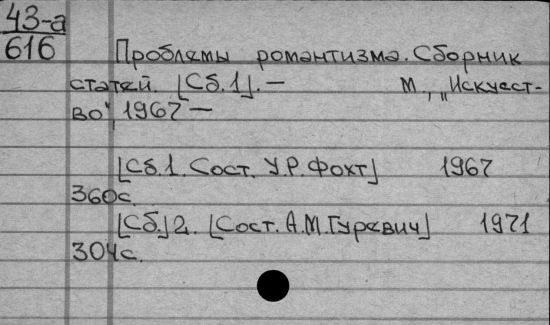 43-а
616
Проблемы романтизма. Сборник
статей. [Сб. 1]. — М., „Искусст-
во", 1967 —
[Сб. 1. Сост. У.Р. Фохт] 1967
360с.
[Сб.] 2. [Сост. А.М. Гуревич] 1971
304с.